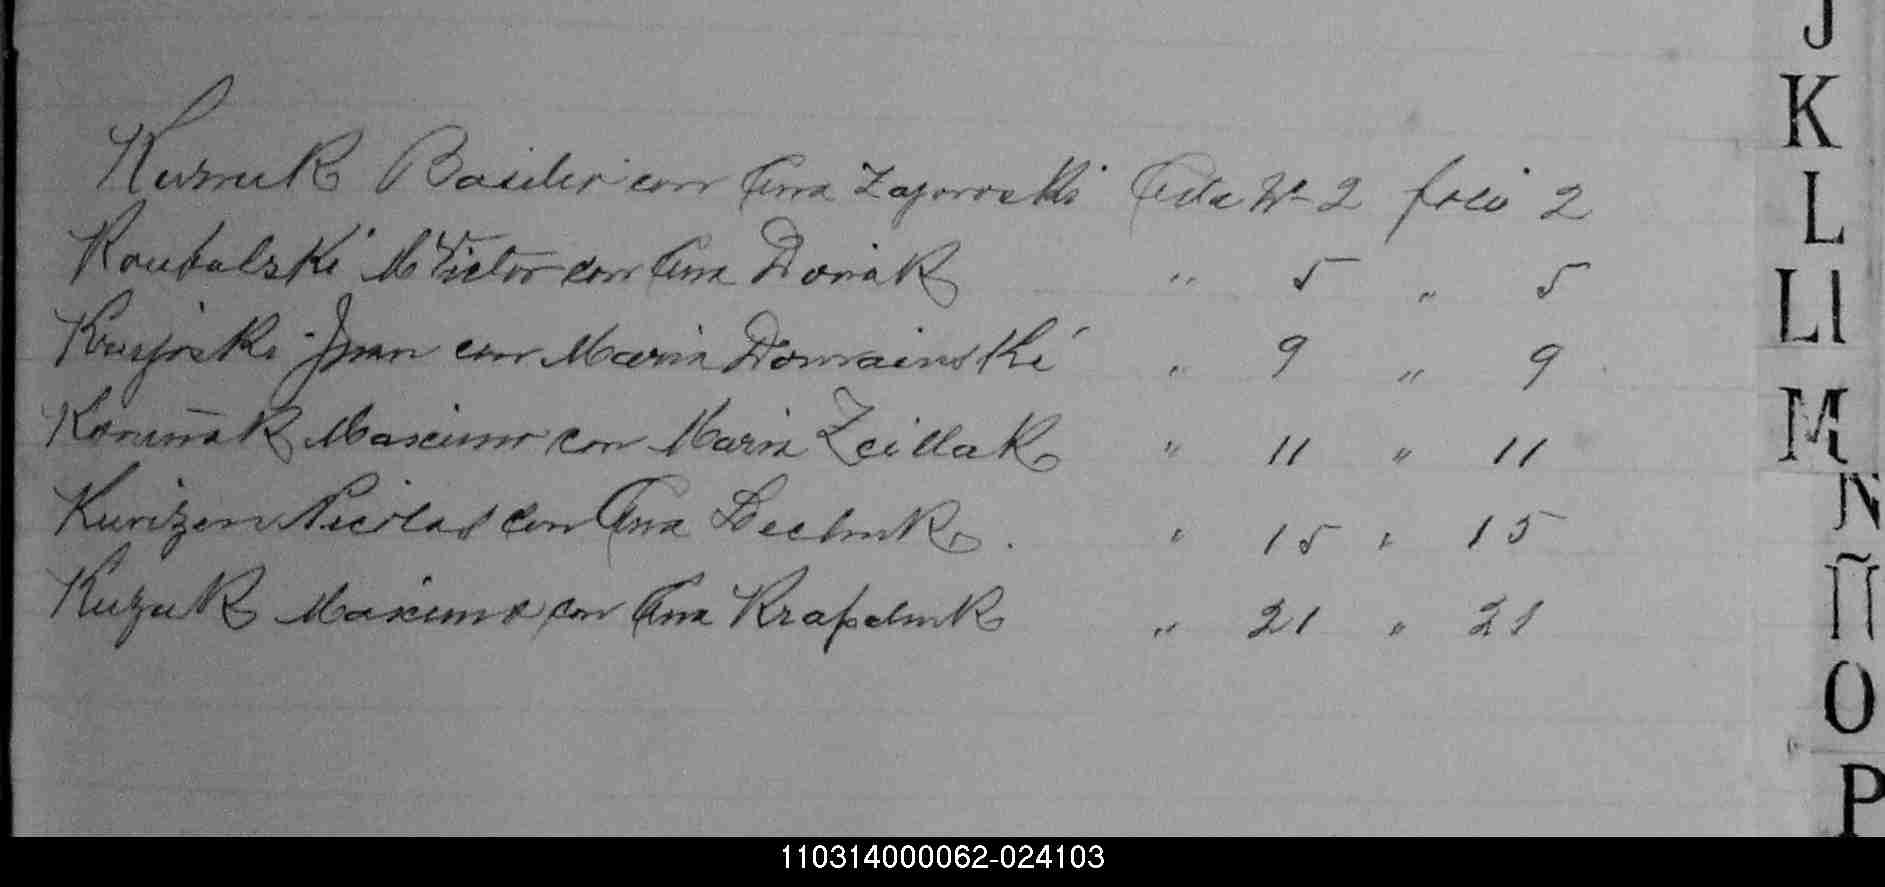 Kuzmuk Basilio con Ana Zagoroski Acta Nº 2 folio 2
Koubalski M Victor con Ana Doniak " 5 " 5
Krujoski Juan con Maria Domainski " 9 " 9
Koruniak Maximo con Maria Zeillak " 11 " 11
Kurizen Nicolas con Ana Bechuk " 15 " 15
Kuzuk Maximo con Ana Krapchuk " 21 " 21
J
K
L
Ll
M
N
Ñ
O
P
110314000062-024103